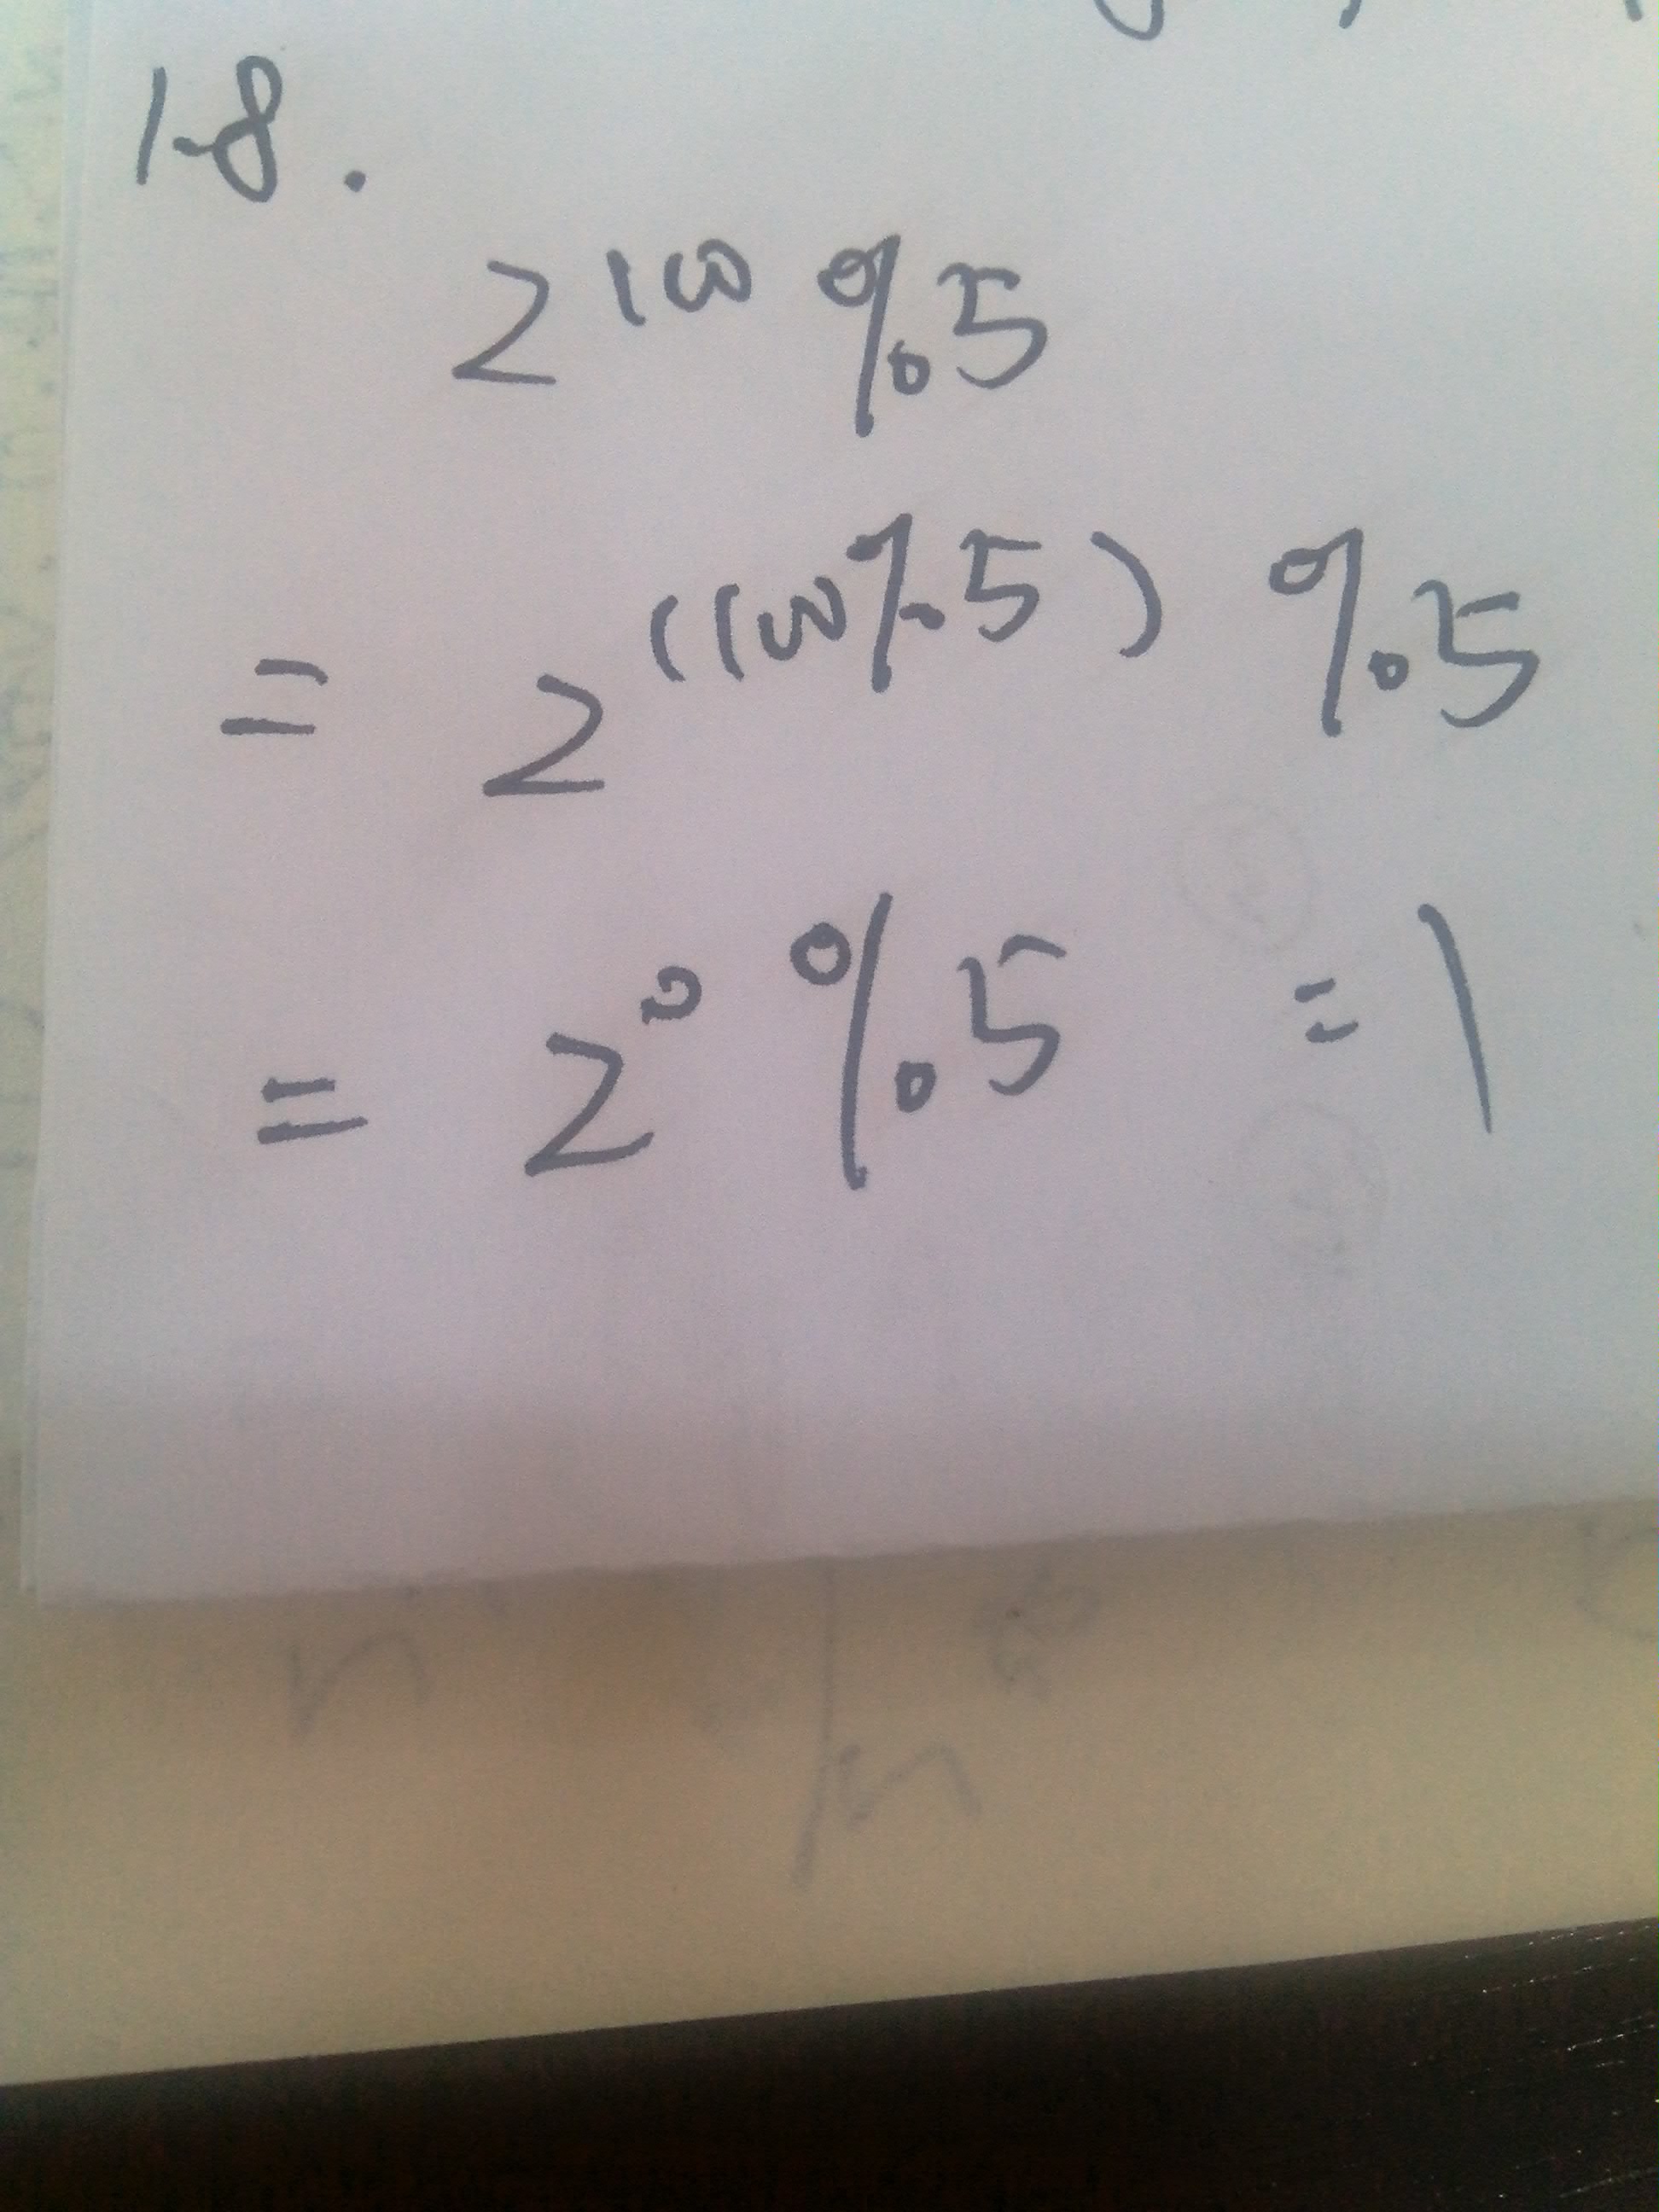 1-8.
2^100 % 5
= 2^(100%5) % 5
= 2^0 % 5 = 1